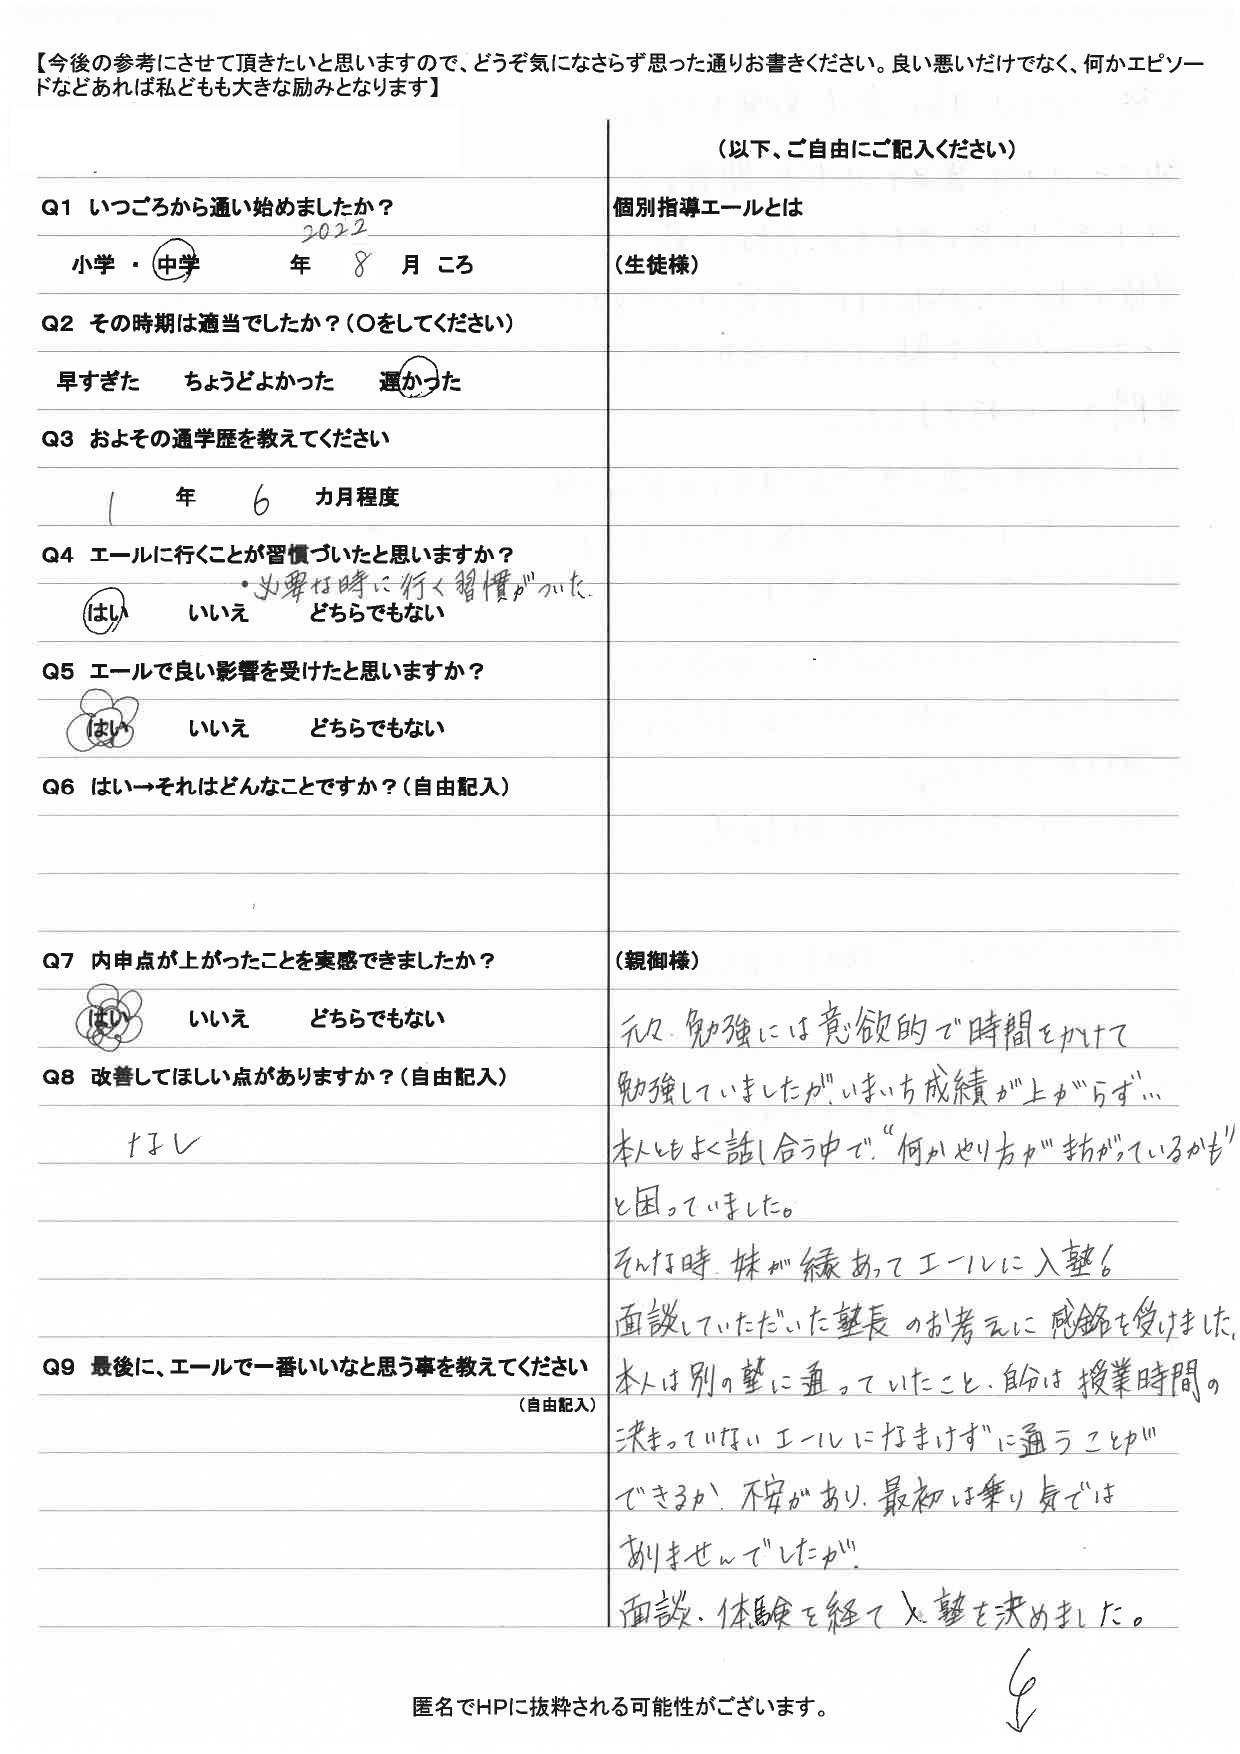 【今後の参考にさせて頂きたいと思いますので、どうぞ気になさらず思った通りお書きください。良い悪いだけでなく、何かエピソー
ドなどあれば私どもも大きな励みとなります】
Q1 いつごろから通い始めましたか？
2022
小学 ・ 中学 年 8 月 ころ
Q2 その時期は適当でしたか？（〇をしてください）
早すぎた ちょうどよかった 遅かった
Q3 おおよその通学歴を教えてください
1 年 6 カ月程度
Q4 エールに行くことが習慣づいたと思いますか？
・必要な時に行く習慣がついた.
はい いいえ どちらでもない
Q5 エールで良い影響を受けたと思いますか？
はい いいえ どちらでもない
Q6 はい→それはどんなことですか？（自由記入）
Q7 内申点が上がったことを実感できましたか？
はい いいえ どちらでもない
Q8 改善してほしい点がありますか？（自由記入）
なし
Q9 最後に、エールで一番いいなと思う事を教えてください
（自由記入）
（以下、ご自由にご記入ください）
個別指導エールとは
（生徒様）
（親御様）
元々、勉強には意欲的で時間をかけて
勉強していましたが、いまいち成績が上がらず…
本人ともよく話し合う中で、“何かやり方がまちがっているかも”
と困っていました。
そんな時、妹が縁あってエールに入塾。
面談していただいた塾長のお考えに感銘を受けました。
本人は別の塾に通っていたこと、自分は授業時間の
決まっていないエールになまけずに通うことが
できるか、不安があり、最初は乗り気では
ありませんでしたが、
面談、体験を経て入塾を決めました。
匿名でHPに抜粋される可能性がございます。